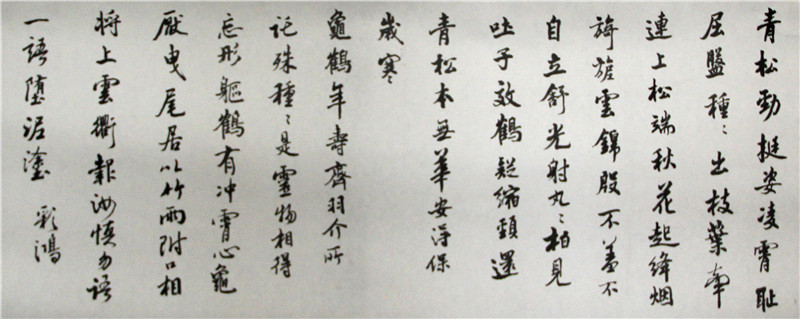 青松勁挺姿凌霄耻
屈盤種〻出枝葉牽
連上松端秋花起絳烟
旖旎雲錦殷不羞不
自立舒光射丸〻柏見
吐子效鶴疑縮頸還
青松本無華安得保
歲寒
龜鶴年壽齊羽介所
託殊種〻是靈物相得
忘形軀鶴有冲霄心龜
厭曳尾居以竹兩附口相
將上雲衢報汝慎勿語
一語墮泥塗 彩鴻